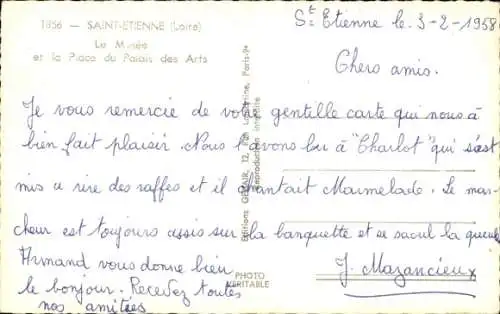 1856 — SAINT-ETIENNE (Loire)
Le Musée
et la Place du Palais des Arts
St Etienne le 3-2-1958
Chers amis.
Je vous remercie de votre gentille carte qui nous à
bien fait plaisir. Nous l'avons lu à "Charlot" qui s'est
mis a rire des raffes et il chantait Marmelade. Le mar-
cheur est toujours assis sur la banquette et se saoul la gueule
Armand vous donne bien
le bonjour. Recevez toutes
nos amitées
J. Mazancieux
Editions 12, Paris-9e
Reproduction interdite
PHOTO
VERITABLE